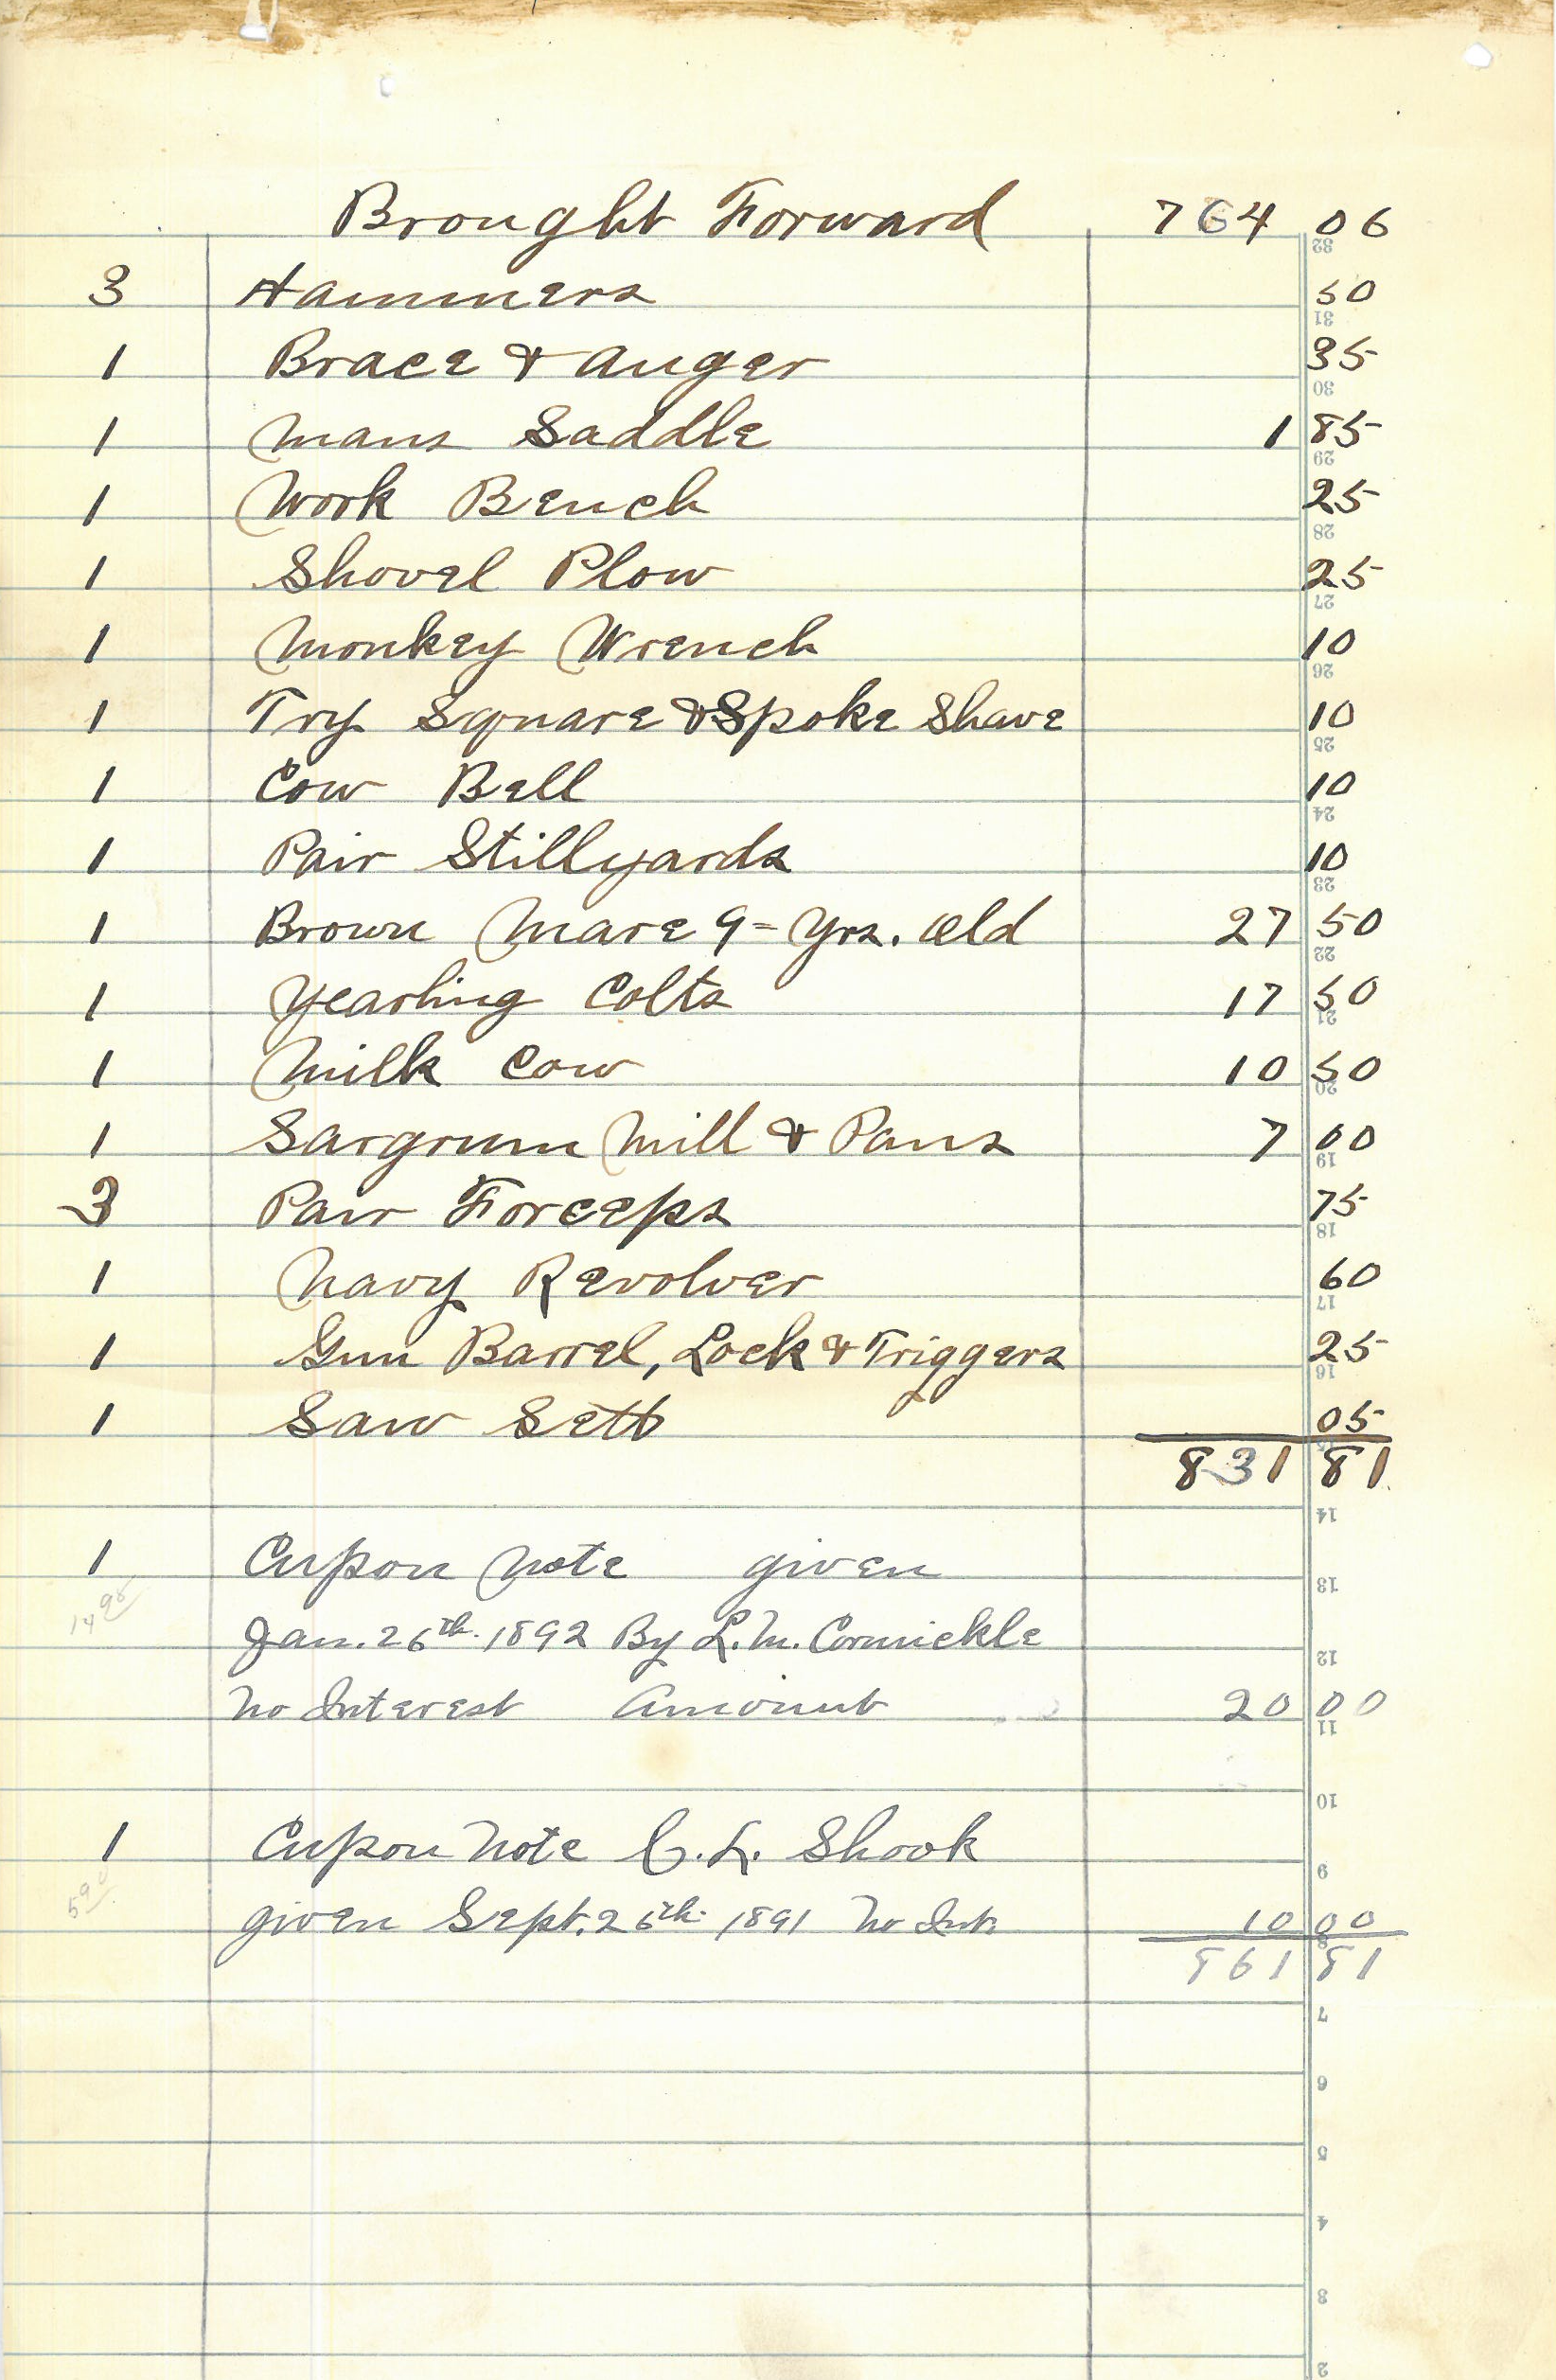 Brought Forward 764 06
32
3 Hammers 50
31
1 Brace & Auger 35
30
1 Mans Saddle 1 85
29
1 Work Bench 25
28
1 Shovel Plow 25
27
1 Monkey Wrench 10
26
1 Try Square & Spoke Shave 10
25
1 Cow Bell 10
24
1 Pair Stillyards 10
23
1 Brown Mare 9 = Yrs. Old 27 50
22
1 Yearling Colts 17 50
21
1 Milk Cow 10 50
20
1 Sargrum Mill & Pans 7 00
19
3 Pair Forceps 75
18
1 Navy Revolver 60
17
1 Gun Barrel, Lock & Triggers 25
16
1 Saw Sett 05
831 81
14
1 Cupon Note given
13
14 95
Jan. 26th. 1892 By L. M. Cormickle
12
No Interest Amount 20 00
11
10
1 Cupon Note C. L. Shook
9
given Sept. 26th. 1891 No Int. 10 00
8
861 81
7
6
5
4
3
2